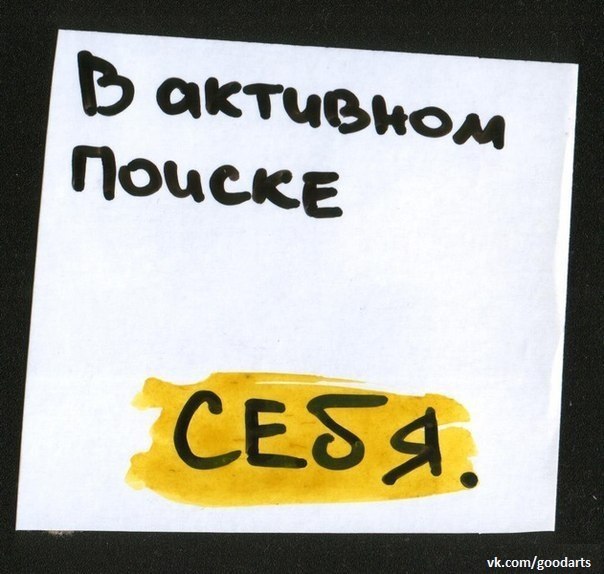 В активном
поиске
СЕБЯ.
vk.com/goodarts